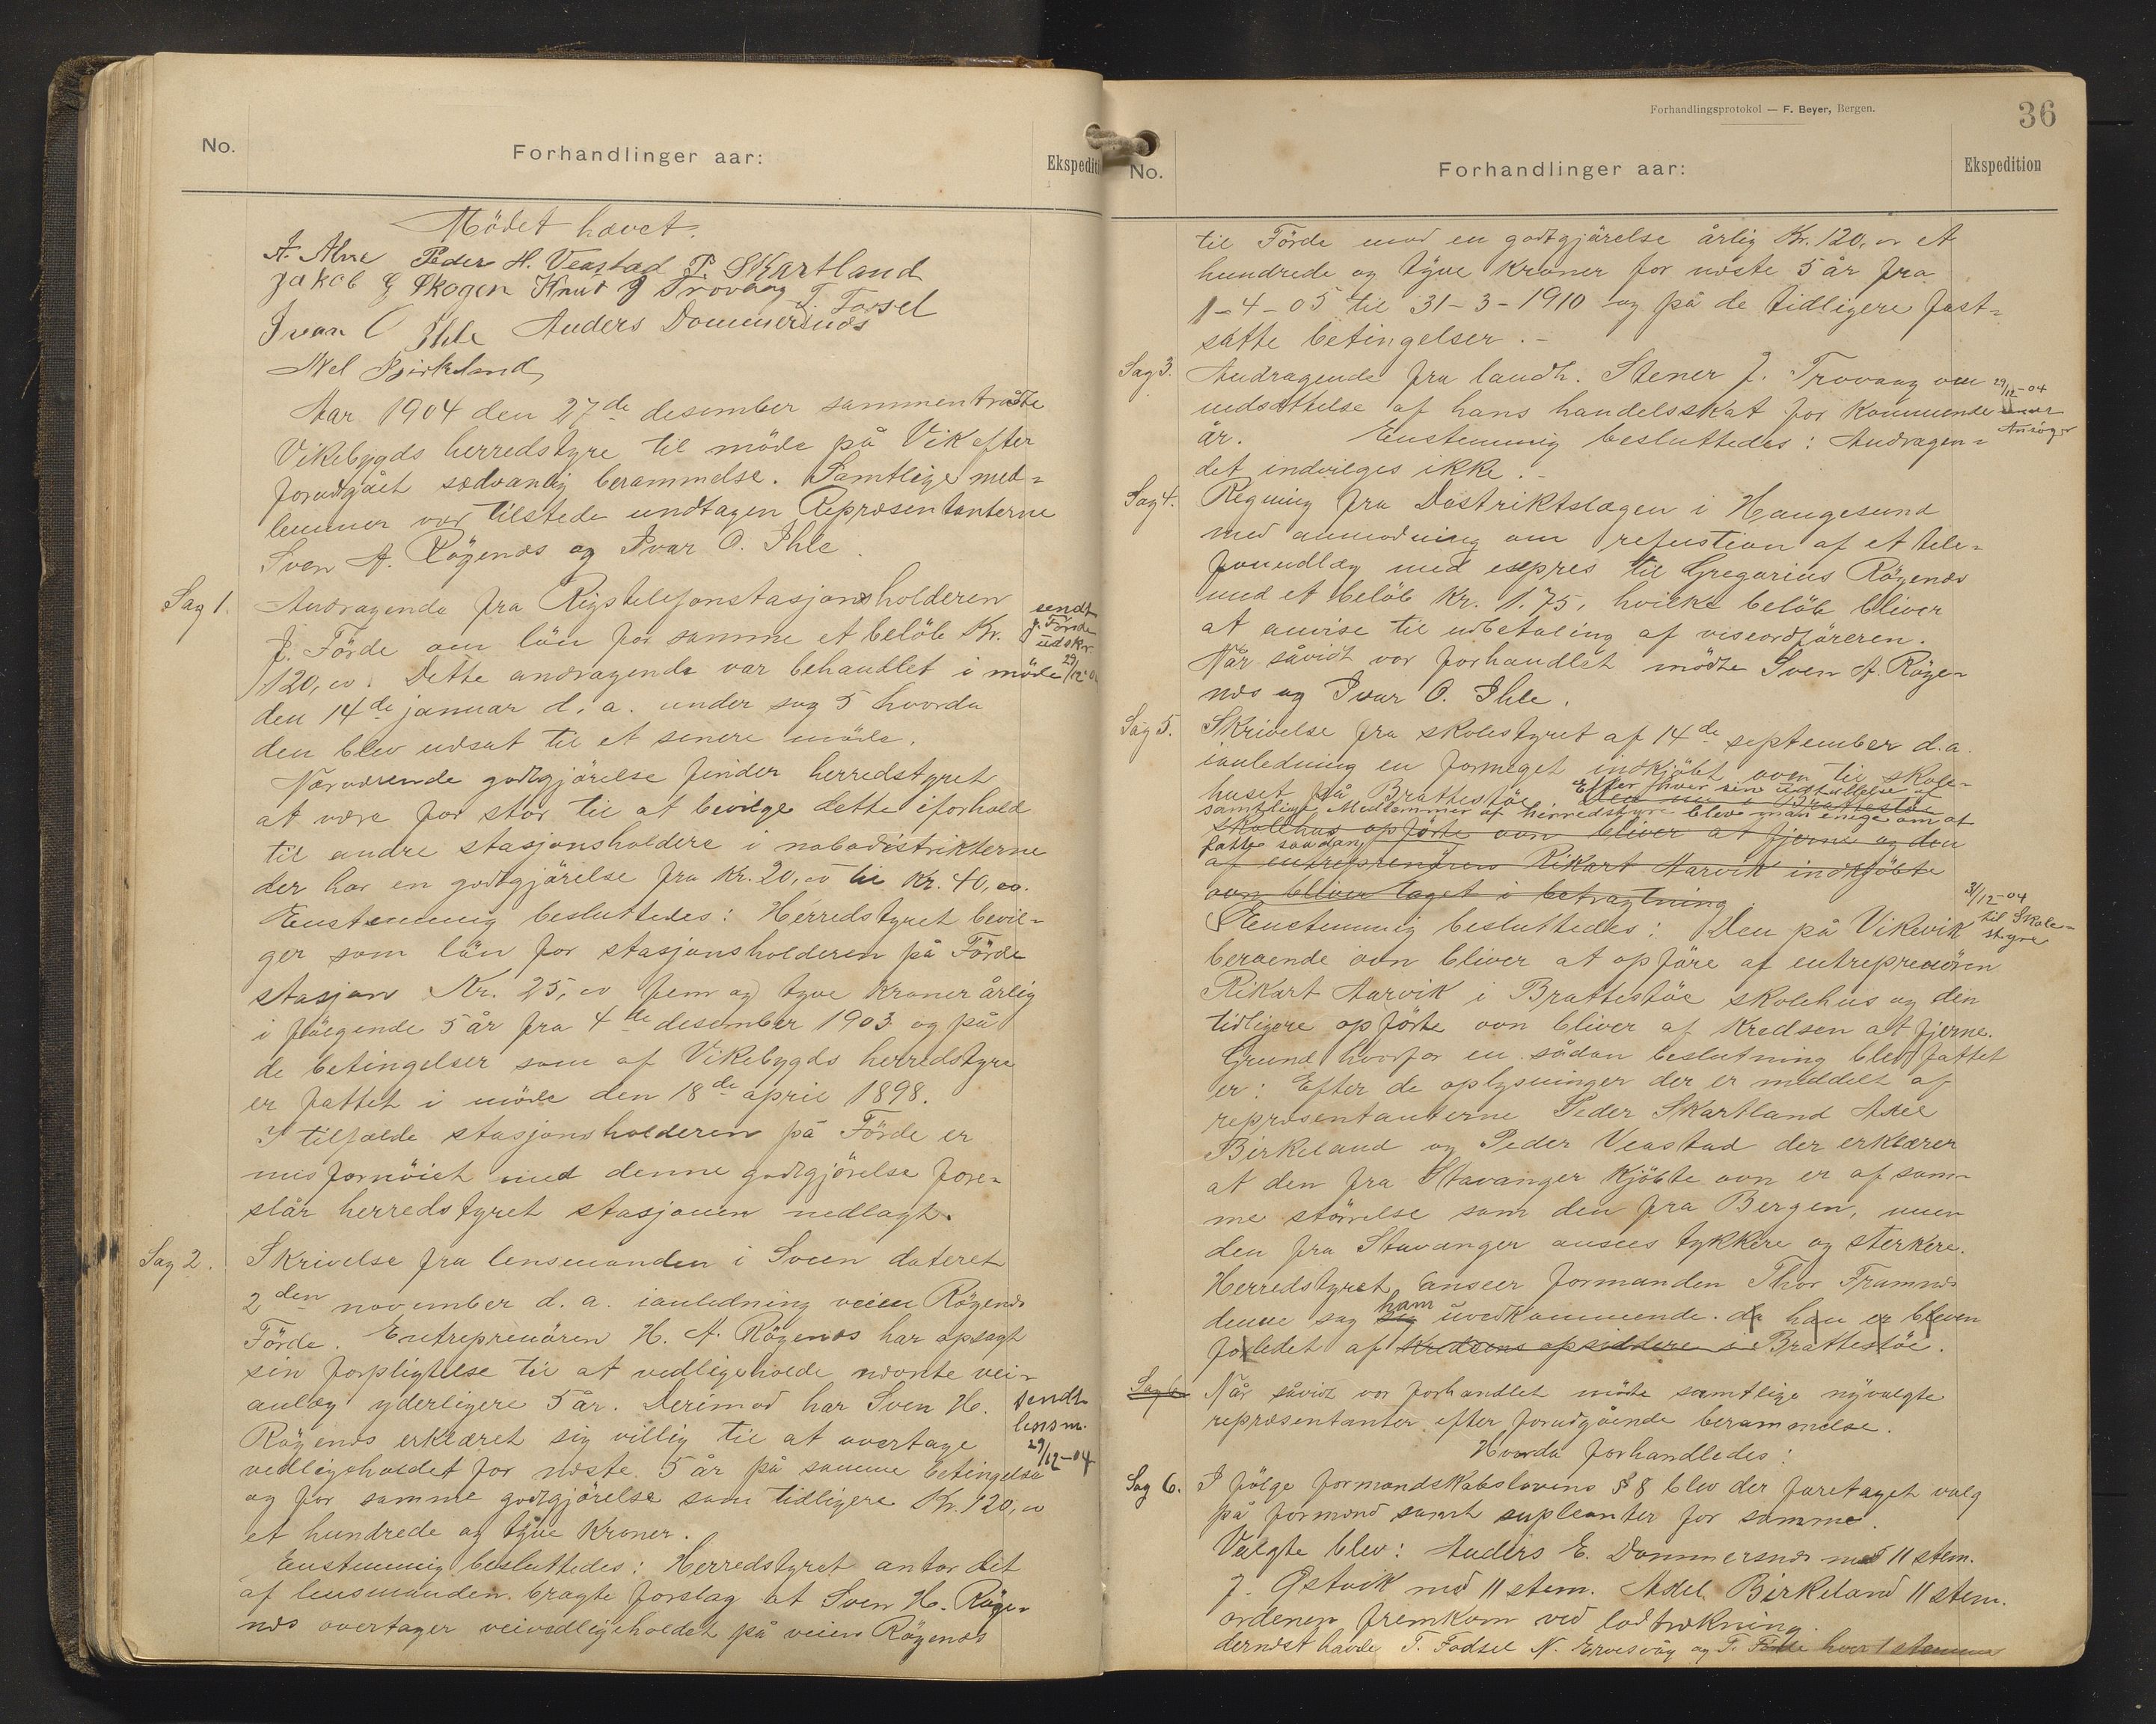 No.
Forhandlinger aar:
Ekspediti
Mödet hævet.
A. Alne Peder H. Veastad P. Skartland
Jakob G Skogen Knut J Trovaag T. Fosel
Ivar O Ihle Anders Dommersnæs
Axel Birkeland
Aar 1904 den 27de desember sammentraadte
Vikebygds herredstyre til möde på Vik efter
forudgået sædvanlig berammelse. Samtlige med=
lemmer var tilstede undtagen Repræsentanterne
Sven A. Rögenæs og Ivar O. Ihle.
Sag 1. Andragende fra Rigstelefonstasjonsholderen
J. Förde om lön for samme et belöb Kr.
120,00. Dette andragende var behandlet i möde
sendt
J. Förde
udskr.
29/12 04
den 14de januar d. a. under sag 5 hvorda
den blev udsat til et senere möde.
Nærværende godtgjörelse finder herredstyret
at være for stor til at bevilge dette iforhold
til andre stasjonsholdere i nabodistrikterne
der har en godtgjörelse fra Kr. 20,00 til Kr. 40,00.
Enstemmig besluttedes: Herredstyret bevil=
ger som lön for stasjonsholderen på Förde
stasjon Kr. 25,00 fem og tyve kroner årlig
i fölgende 5 år fra 4de desember 1903 og på
de betingelser som af Vikebygds herredstyre
er fattet i möde den 18de april 1898.
I tilfælde stasjonsholderen på Förde er
misfornöiet med denne godtgjörelse fore=
slår herredstyret stasjonen nedlagt.
Sag 2. Skrivelse fra lensmanden i Sveen dateret
2den november d. a. ianledning veien Rögenæs
Förde. Entreprenören H. A. Rögenæs har opsagt
sin forpligtelse til at vedligeholde nævnte vei=
anlæg yderligere 5 år. Derimod har Sven H.
Rögenæs erklæret sig villig til at overtage
sendt
lensm.
29/12-04
vedligeholdet for næste 5 år på samme betingelse
og for samme godtgjörelse som tidligere Kr. 120,00
et hundrede og tyve kroner.
Enstemmig besluttedes: Herredstyret antar det
af lensmanden bragte forslag at Sven H. Röge=
næs overtager veivedligeholdet på veien Rögenæs
Forhandlingsprotokol — F. Beyer, Bergen.
36
No.
Forhandlinger aar:
Ekspedition
til Förde mod en godtgjörelse årlig Kr. 120,00 et
hundrede og tyve kroner for næste 5 år fra
1-4-05 til 31-3-1910 og på de tidligere fast=
satte betingelser.-
Sag 3. Andragende fra landh. Stener J. Trovaag om
nedsættelse af hans handelsskat for kommende
29/12-04
Ansöger
år. Enstemmig besluttedes: Andragen=
det indvilges ikke.-
Sag 4. Regning fra Distriktslægen i Haugesund
med anmodning om refustion af et tele=
fonudlæg med expres til Gregorius Rögenæs
med et belöb Kr. 1.75, hvilke belöb bliver
at anvise til udbetaling af viseordföreren.
Når såvidt var forhandlet mödte Sven A. Röge=
næs og Ivar O. Ihle.
Sag 5. Skrivelse fra skolestyret af 14de september d.a.
ianledning en formeget indkjöbt ovn til skole=
huset på Brattestöe. Efter hver sin udtallelse af
Den nu i Brattestöe
samtlige Medlemmer af herredstyre blev man enige om at
skolehus opförte ovn bliver at fjerne og den
fatte saadan
af entreprenören Rikart Aarvik indkjöbte
ovn bliver taget i betragtning.
Enstemmig besluttedes: Den på Vikevik
31/12-04
til Skole=
styre
beroende ovn bliver at opföre af entreprenören
Rikart Aarvik i Brattestöe skolehus og den
tidligere opförte ovn bliver af kredsen at fjerne.
Grund hvorfor en sådan beslutning blev fattet
er: Efter de oplysninger der er meddelt af
repræsentanterne Peder Skartland Axel
Birkeland og Peder Veastad der erklærer
at den fra Stavanger kjöbte ovn er af sam=
me störrelse som den fra Bergen, men
den fra Stavanger ansees tykkere og sterkere.
Herredstyret anseer formanden Thor Framnæs
denne sag sig ham uvedkommende. da han er bleven
forledet af kredsens opsiddere i Brattestöe.
Sag 6 Når såvidt var forhandlet mödte samtlige nyvalgte
repræsentanter efter forudgående berammelse.
Hvorda forhandledes:
Sag 6. I fölge formandskabslovens § 8 blev der foretaget valg
på formænd samt supleanter for samme.
Valgte blev: Anders E. Dommersnæs med 11 stem.
J. Östvik med 11 stem. Axel Birkeland 11 stem.
ordenen fremkom ved lodtrækning.
dernæst havde T. Fosel N. Ervesvåg og T. Förde hver 1 stemme